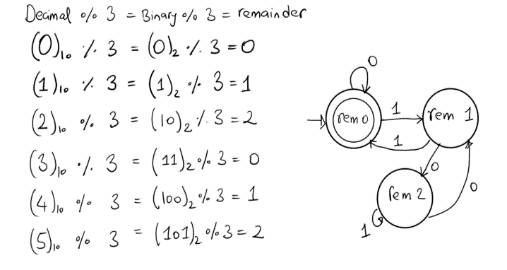 Decimal % 3 = Binary % 3 = remainder
(0)₁₀ % 3 = (0)₂ % 3 = 0
(1)₁₀ % 3 = (1)₂ % 3 = 1
(2)₁₀ % 3 = (10)₂ % 3 = 2
(3)₁₀ % 3 = (11)₂ % 3 = 0
(4)₁₀ % 3 = (100)₂ % 3 = 1
(5)₁₀ % 3 = (101)₂ % 3 = 2
0
rem 0
1
rem 1
1
0
0
rem 2
1